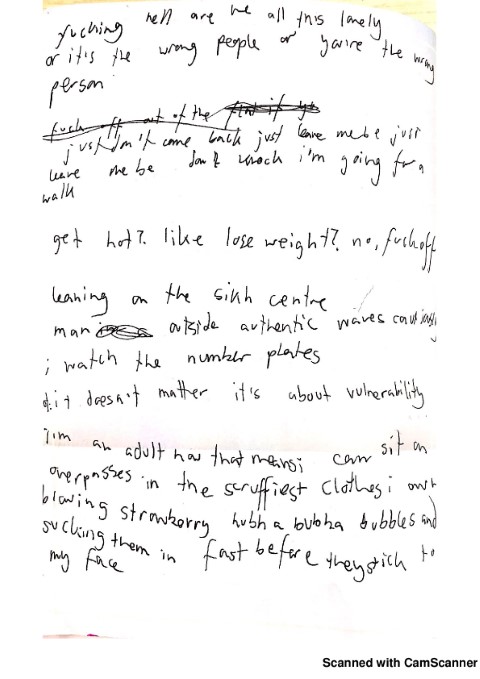 fucking hell are we all this lonely
or it's the wrong people or you're the wrong
person
fuck off out of the
just don't come back just leave me be just
leave me be don't knock i'm going for a
walk
get hot? like lose weight? no, fuck off
leaning on the sikh centre
man outside authentic waves cautiously
i watch the number plates
it doesn't matter it's about vulnerability
i'm an adult now that means i can sit on
overpasses in the scruffiest clothes i own
blowing strawberry hubba bubba bubbles and
sucking them in fast before they stick to
my face
Scanned with CamScanner